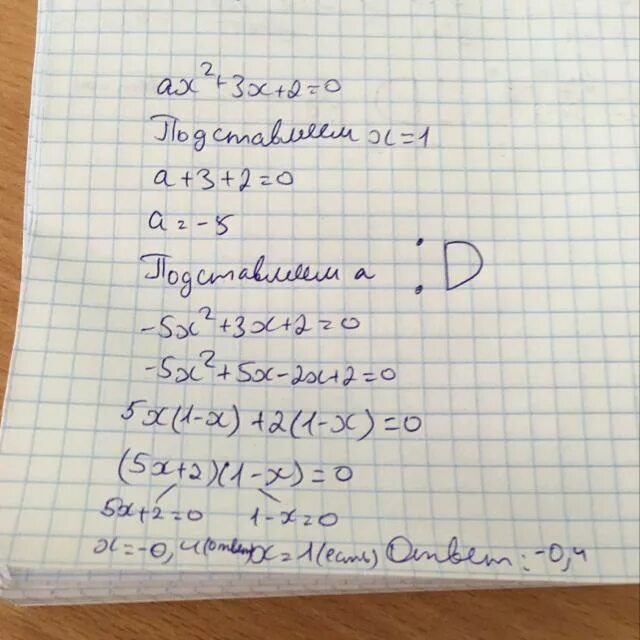 ax²+3x+2=0
Подставляем x=1
a+3+2=0
a=-5
Подставляем a
:D
-5x²+3x+2=0
-5x²+5x-2x+2=0
5x(1-x)+2(1-x)=0
(5x+2)(1-x)=0
5x+2=0 1-x=0
x=-0,4(ответ) x=1(есть) Ответ:-0,4